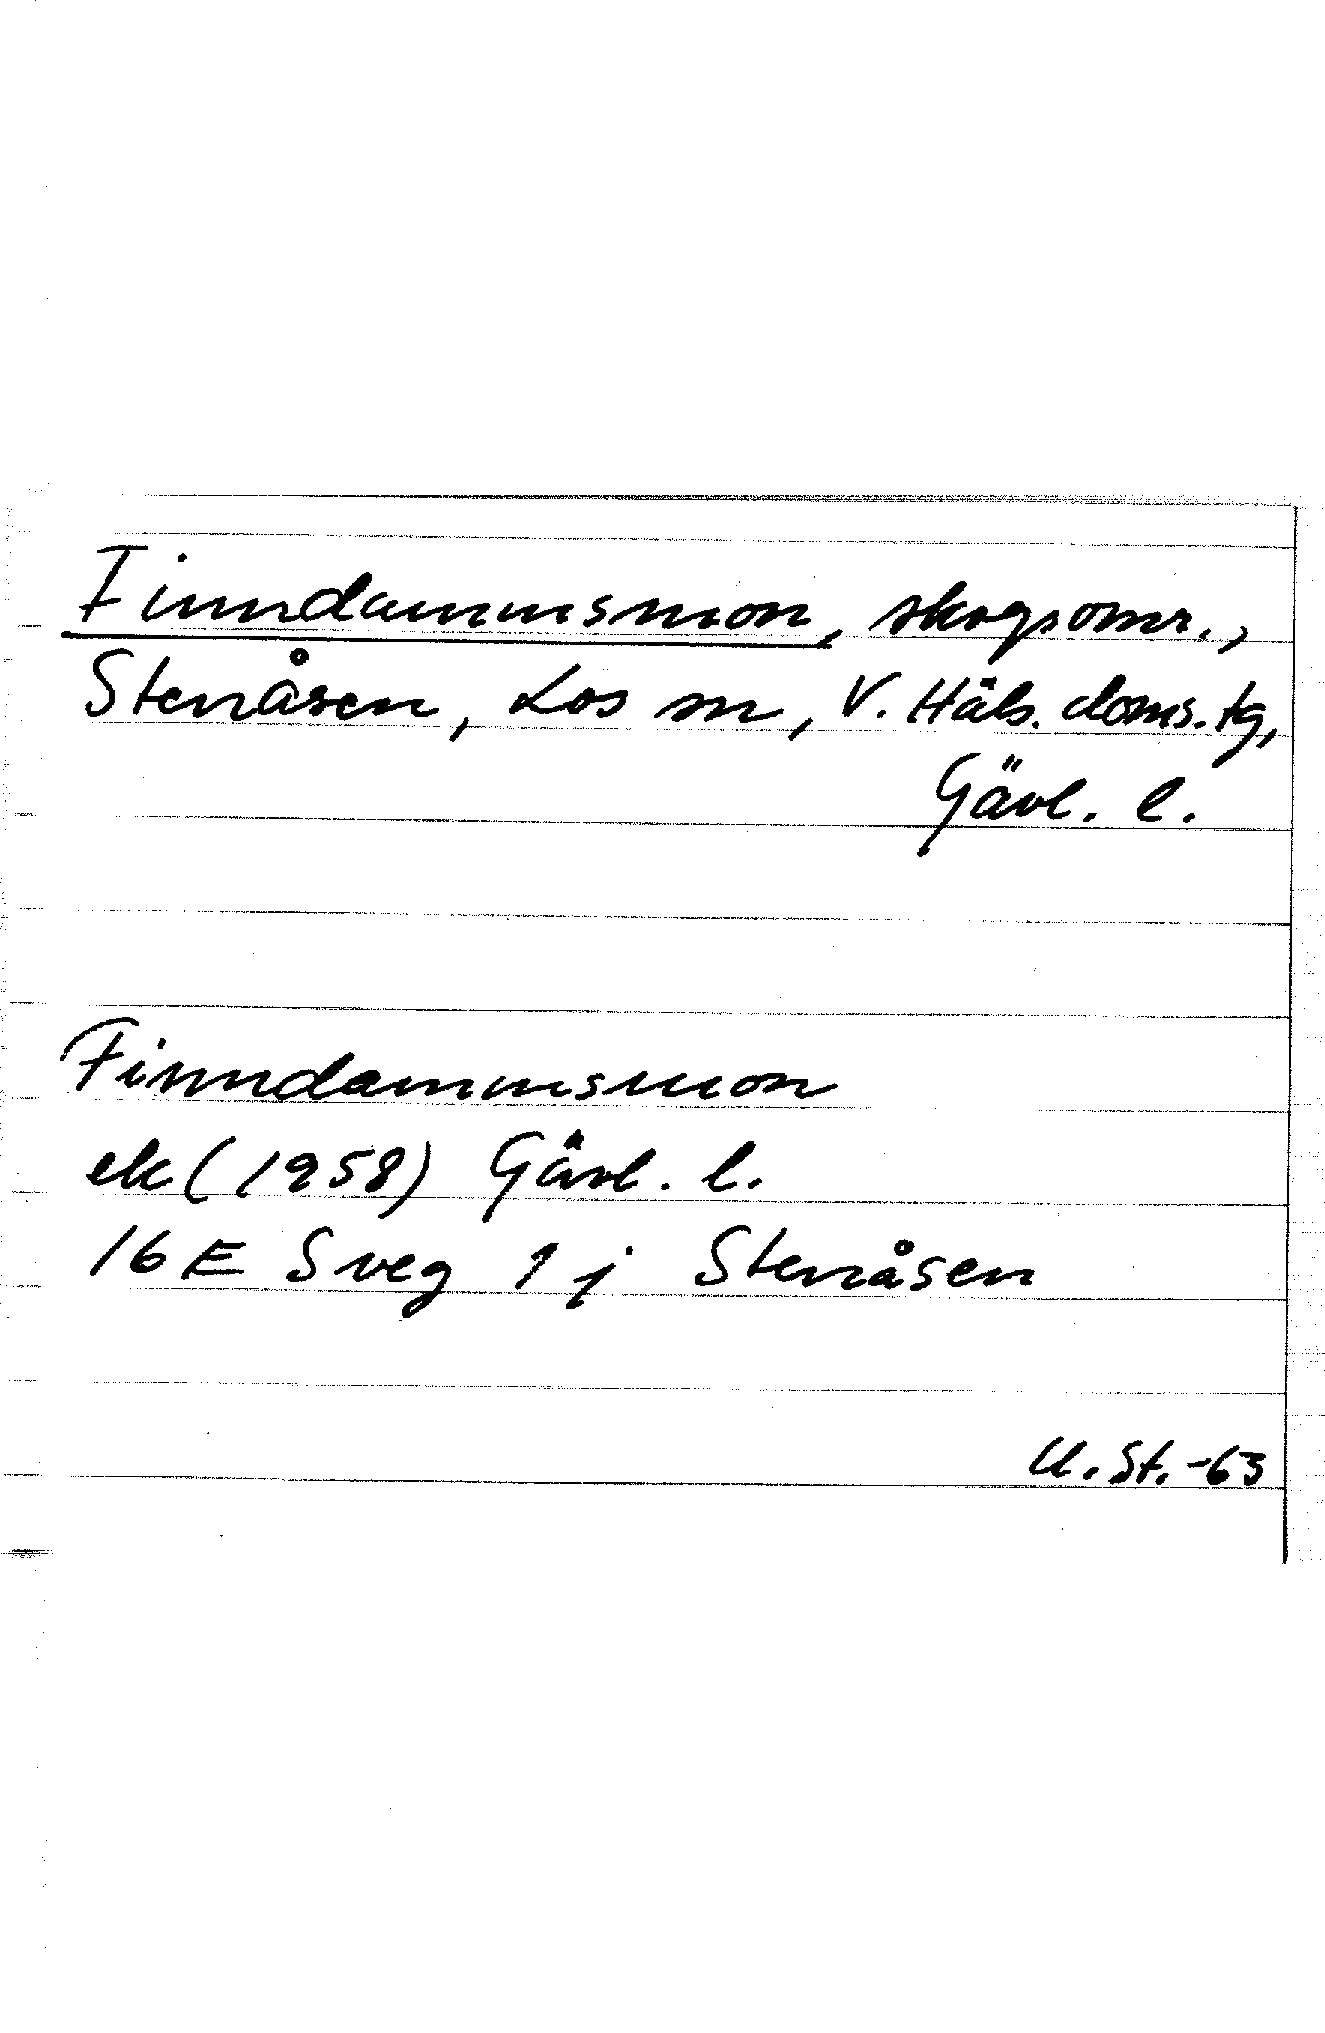 Finndammsmon, skogsomr.,
Stenåsen, Los sn, V. Häls. doms. tg,
Gävl. l.
Finndammsmon
ek (1958) Gävl. l.
16 E Sveg 1 j Stenåsen
U. St. -63